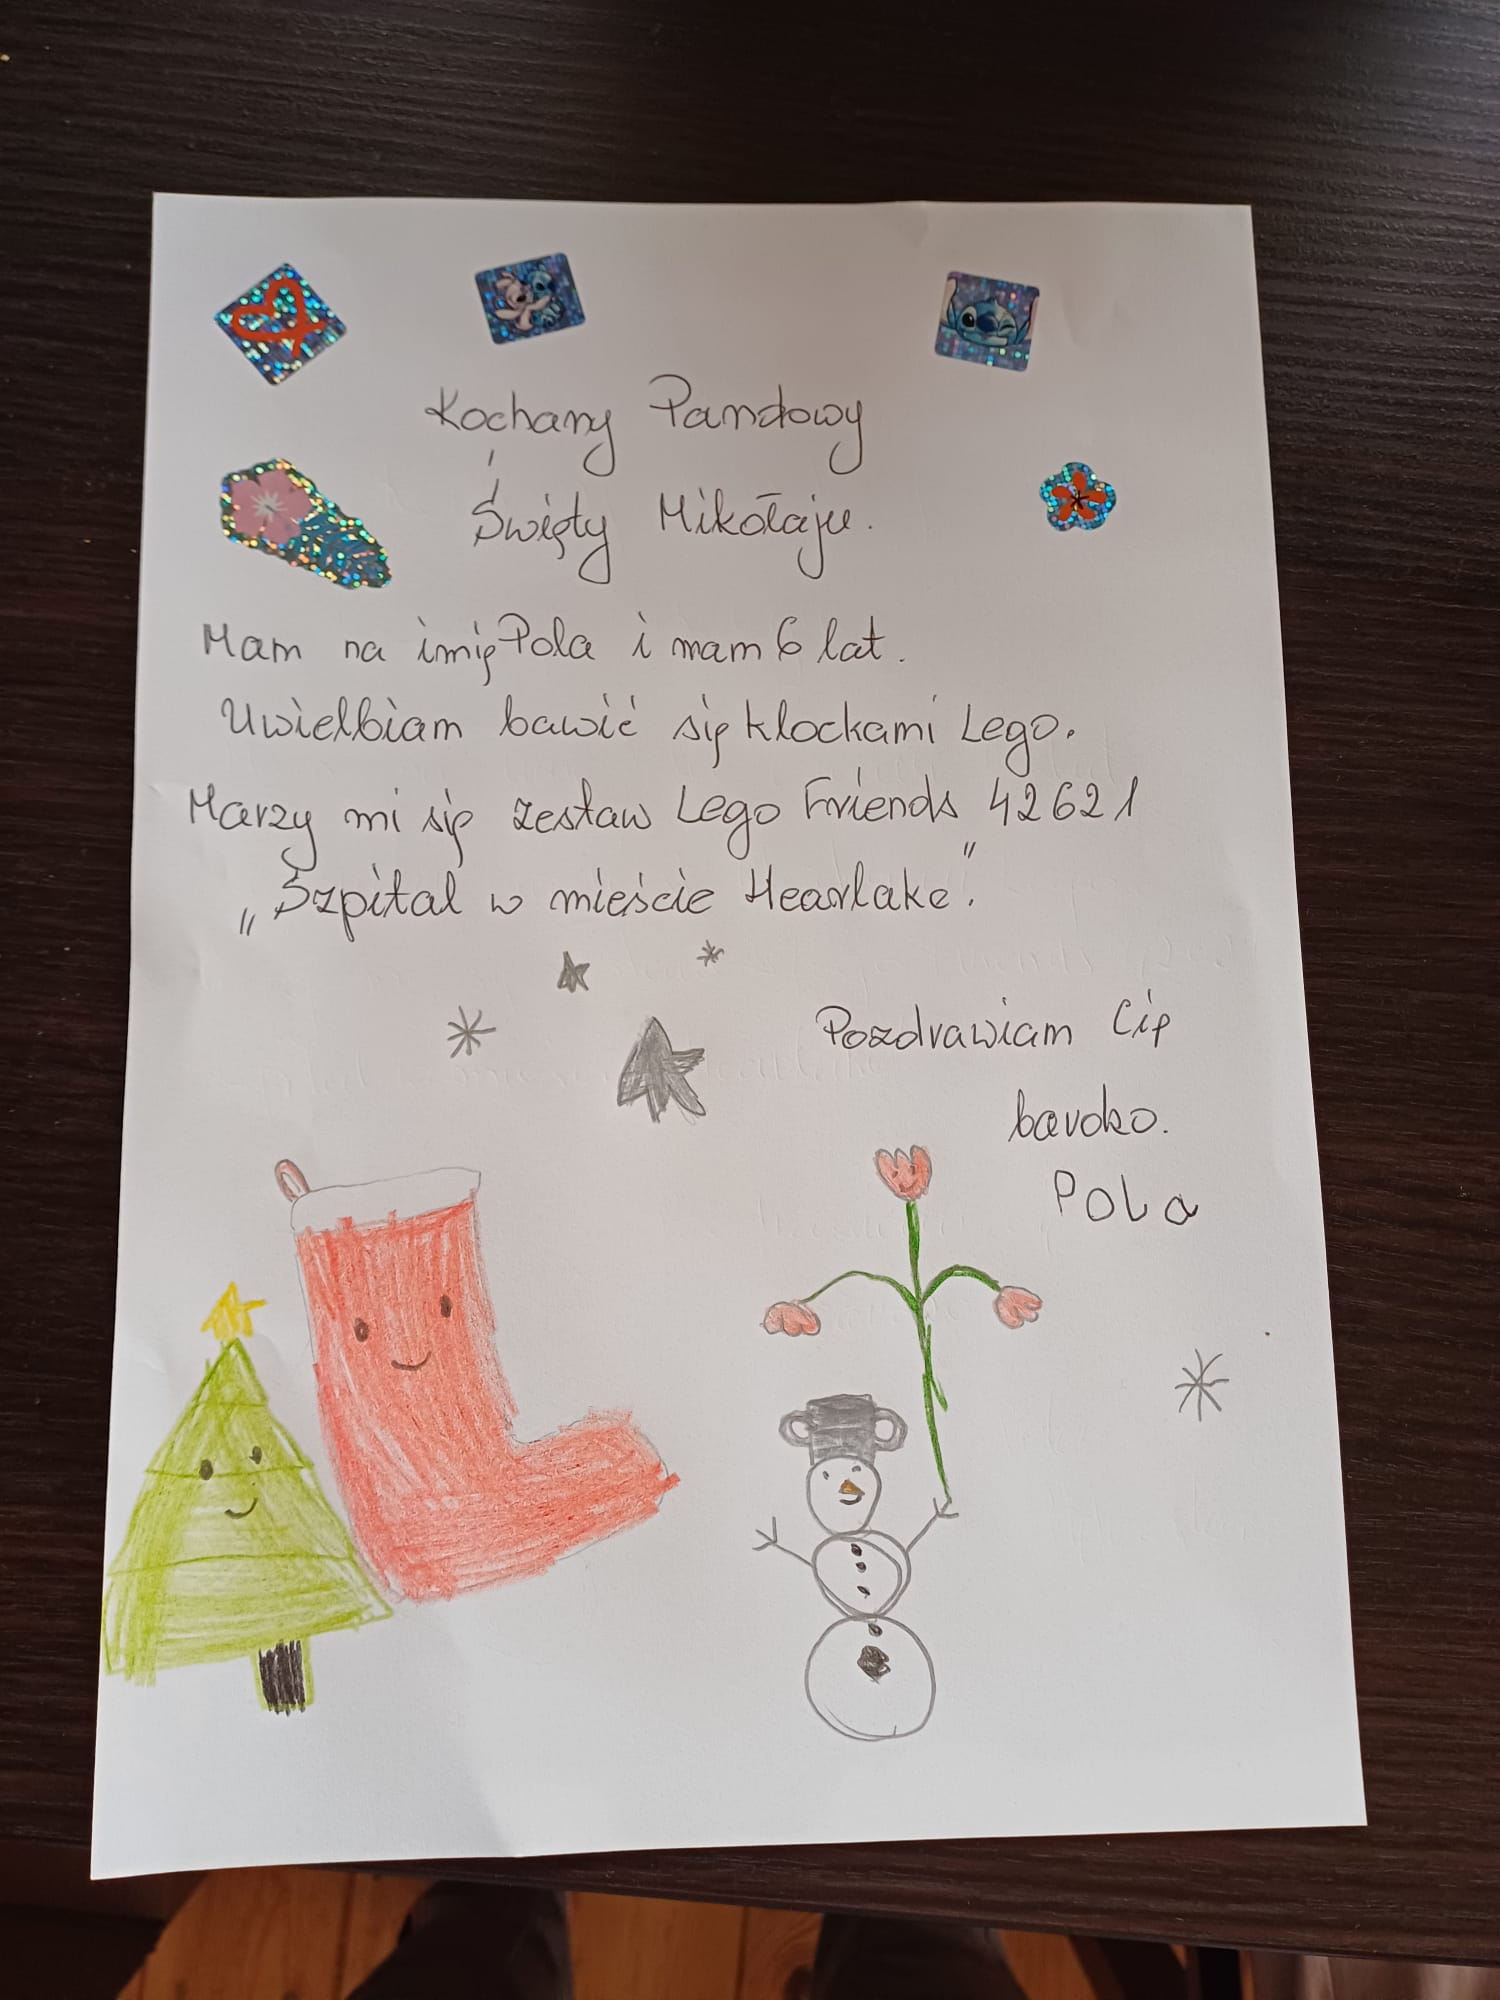 Kochany Pandowy
Święty Mikołaju.
Mam na imię Pola i mam 6 lat.
Uwielbiam bawić się klockami Lego.
Marzy mi się zestaw Lego Friends 42621
„Szpital w mieście Hearlake".
Pozdrawiam Cię
bardzo.
POLa